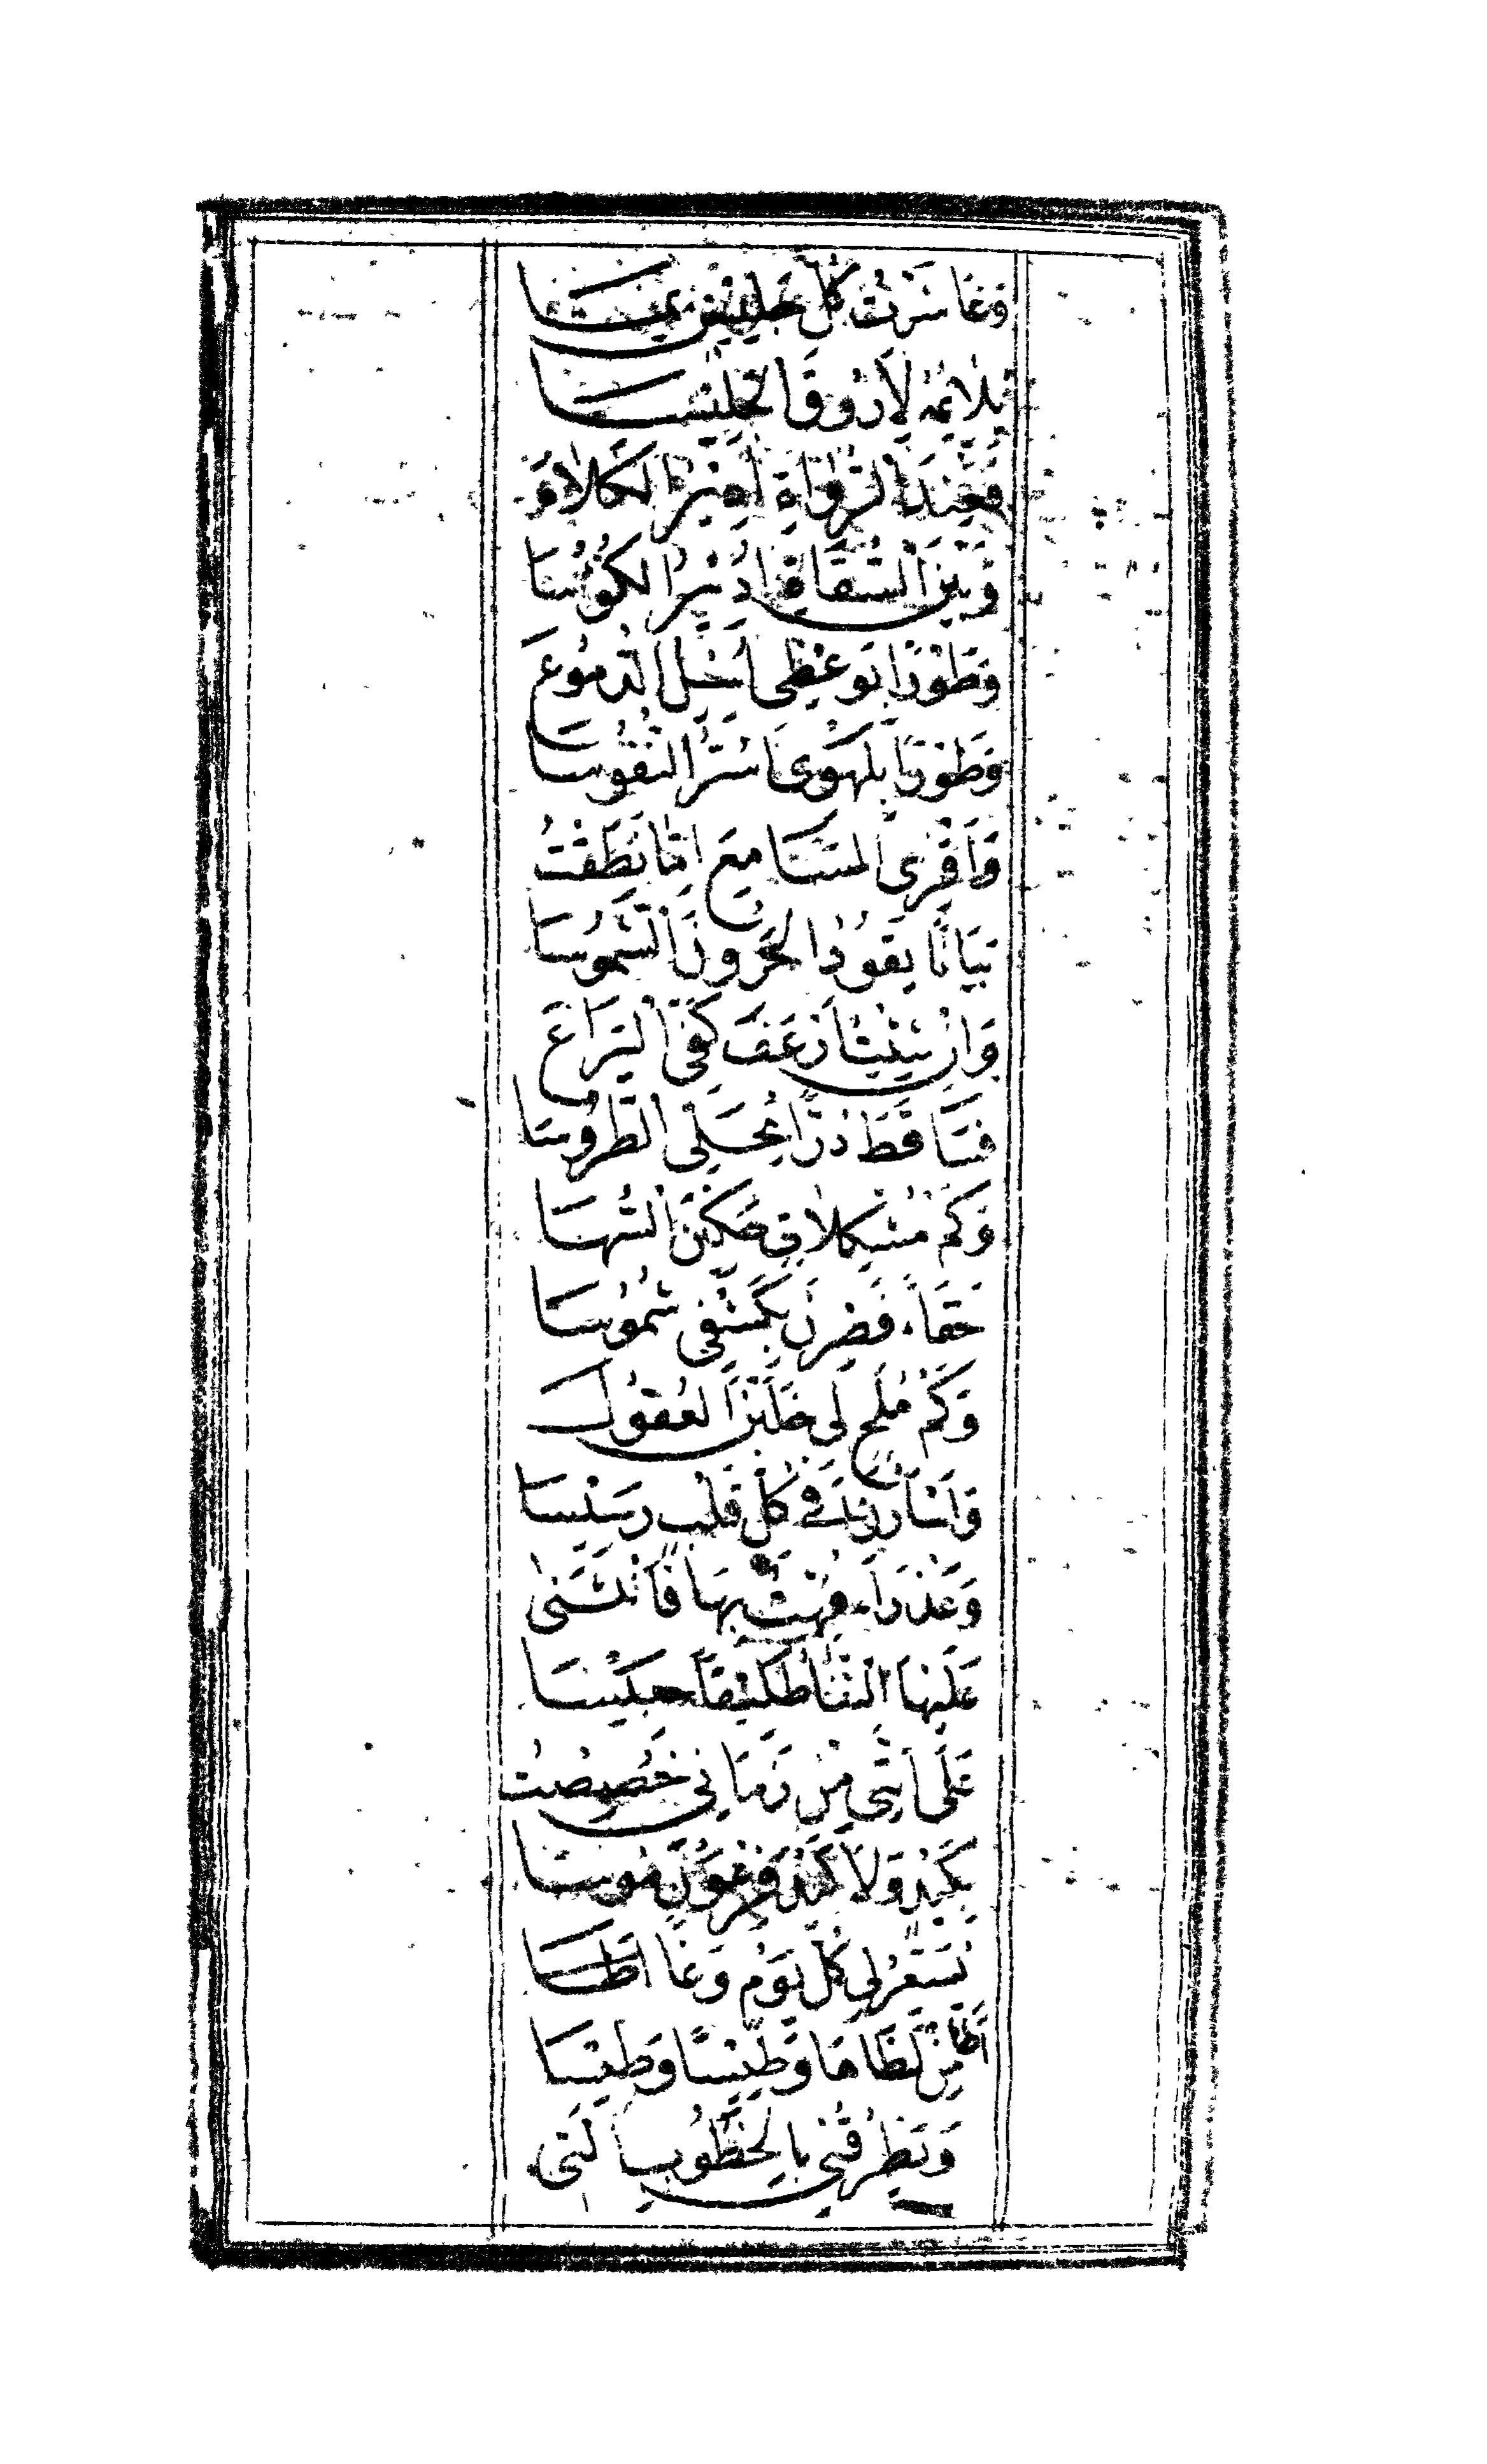 وَعَاشَرْتُ كُلَّ جَلِيْسٍ بِمَا
يُلَائِمُهُ لِأَرُوْقَ الْجَلِيْسَا
فَعِنْدَ الرُّوَاةِ أُدِيْرُ الْكَلَامَ
وَبَيْنَ السُّقَاةِ أُدِيْرُ الْكُؤُسَا
وَطَوْرًا بِوَعْظِي أُسِيْلُ الدُّمُوْعَ
وَطَوْرًا بِلَهْوِي أَسُرُّ النُّفُوْسَا
وَأَقْرِي الْمَسَامِعَ إِمَّا نَطَقْتُ
بَيَانًا يَقُوْدُ الْحَرُوْنَ الشَّمُوْسَا
وَإِنْ شِئْتُ أَرْعَفَ كَفِّي الْيَرَاعَ
فَسَاقَطَ دُرًّا يُحَلِّي الطُّرُوْسَا
وَكَمْ مُشْكِلَاتٍ حَكَيْنَ السُّهَا
خَفَاءً فَصِرْنَ بِكَشْفِي شُمُوْسَا
وَكَمْ مُلَحٍ لِي خَلَبْنَ الْعُقُوْلَ
وَأَسْأَرْنَ فِي كُلِّ قَلْبٍ رَسِيْسَا
وَعَذْرَاءَ فُهْتُ بِهَا فَانْثَنَى
عَلَيْهَا الثَّنَا طَلِيْقًا حَبِيْسَا
عَلَى أَنَّنِي مِنْ زَمَانِي خُصِصْتُ
بِكَيْدٍ وَلَا كَيْدَ فِرْعَوْنَ مُوْسَا
يُسَعِّرُ لِي كُلَّ يَوْمٍ وَغًا
أَطَأُ مِنْ لَظَاهَا وَطِيْسًا وَطِيْسَا
وَيَطْرُقُنِي بِالْخُطُوْبِ الَّتِي